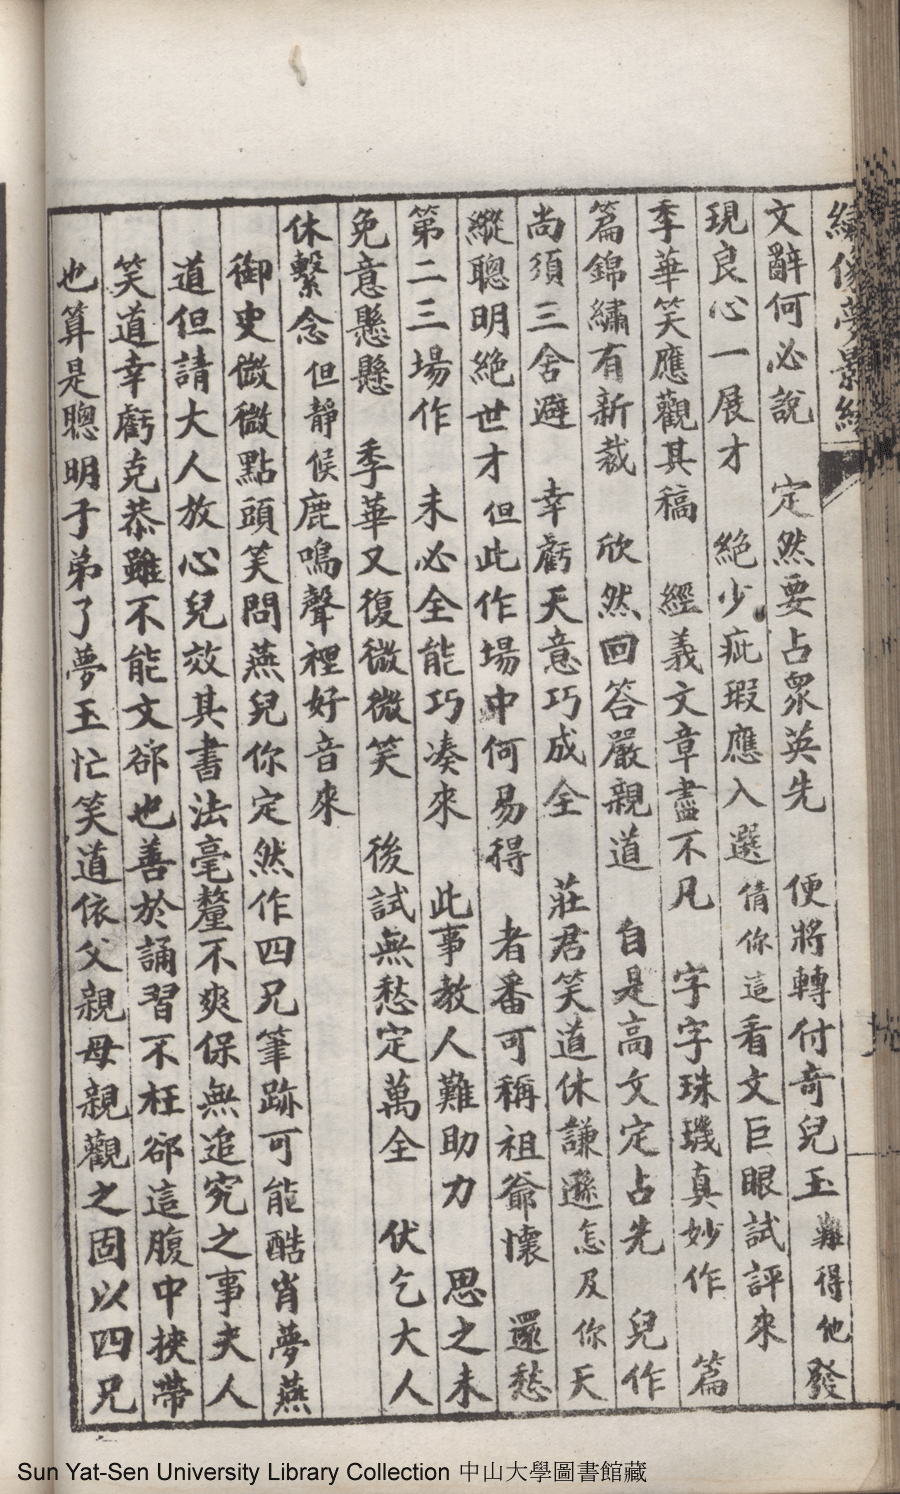 繡像夢影緣
文辭何必說　定然要占眾英先　便將轉付奇兒玉　難得他發
現良心一展才　絕少疵瑕應入選　倩你這看文巨眼試評來
季華笑應觀其稿　經義文章盡不凡　字字珠璣真妙作　篇
篇錦繡有新裁　欣然回答嚴親道　自是高文定占先　兒作
尚須三舍避　幸虧天意巧成全　莊君笑道休謙遜　怎及你天
縱聰明絕世才　但此作場中何易得　者番可稱祖爺懷　還愁
第二三場作　未必全能巧湊來　此事教人難助力　思之未
免意懸懸　季華又復微微笑　後試無愁定萬全　伏乞大人
休繫念　但靜候鹿鳴聲裡好音來
御史微微點頭笑問燕兒你定然作四兄筆跡可能酷肖夢燕
道但請大人放心兒效其書法毫釐不爽保無追究之事夫人
笑道幸虧克恭雖不能文郤也善於誦習不枉郤這腹中挾帶
也算是聰明子弟了夢玉忙笑道依父親母親觀之固以四兄
Sun Yat-Sen University Library Collection 中山大學圖書館藏